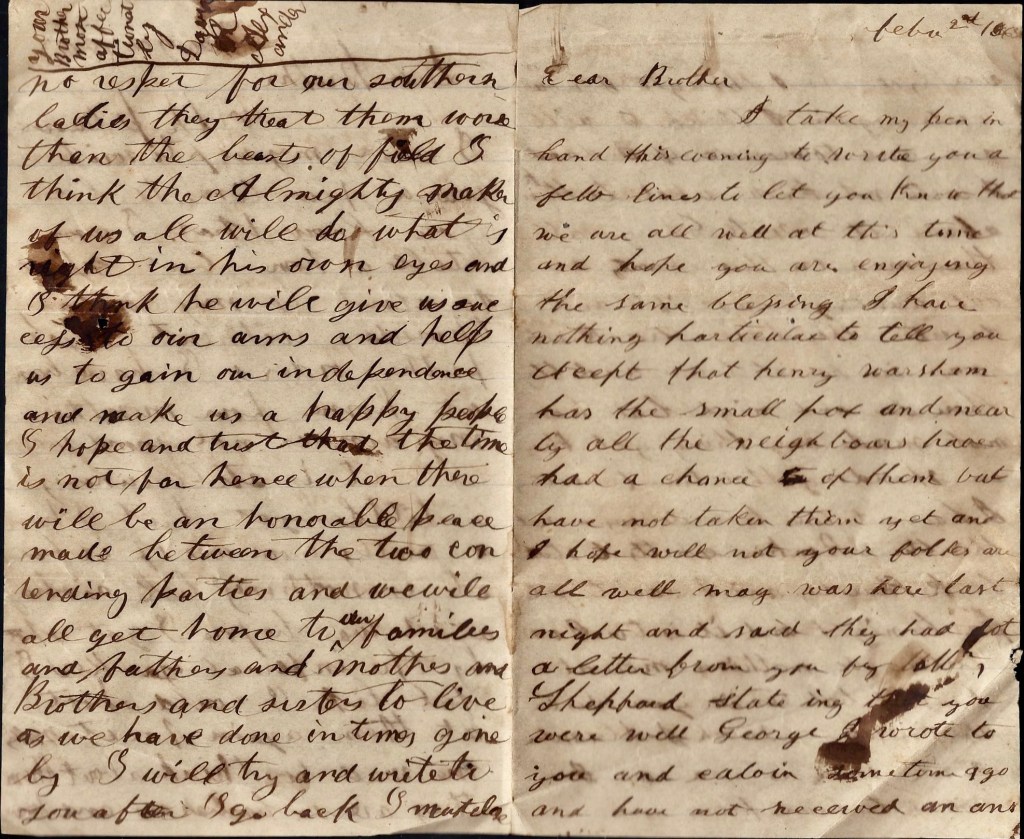 febu 2nd 18
Dear Brother
I take my pen in
hand this evening to write you a
few lines to let you know that
we are all well at this time
and hope you are engoying
the same blessing I have
nothing particular to tell you
except that henry warsham
has the small pox and near
ly all the neighbours have
had a chance of them but
have not taken them yet and
I hope will not your folks are
all well may was here last
night and said they had got
a letter from you by
Sheppard state ing that you
were well George I wrote to
you and ealoin sometime ago
and have not received an ans
no respet for our southern
ladies they treat them worse
then the beasts of field I
think the Almighty maker
of us all will do what is
right in his own eyes and
I think he will give us suc
cess to our arms and help
us to gain our independence
and make us a happy people
I hope and trust that the time
is not far hence when there
will be an honorable peace
made between the two con
tending parties and we will
all get home to our families
and fathers and mothes and
Brothers and sisters to live
as we have done in times gone
by I will try and write to
you after I go back I must close
your
Brother
most
affec
tionat
ly